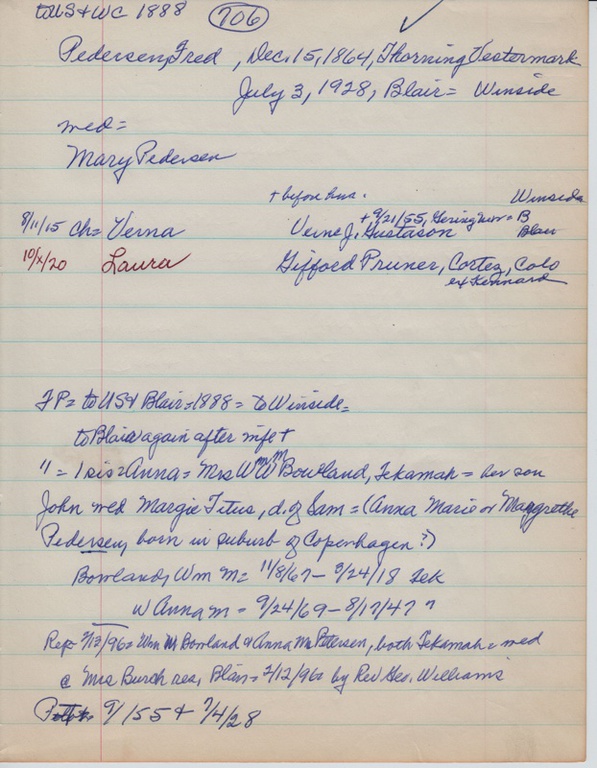 to US & WC 1888 706
Pedersen, Fred , Dec. 15, 1864, Thorning Vestermark
July 3, 1928, Blair = Winside
med =
Mary Pedersen
+ before hus. Winside
8/11/15 ch = Verna Verne J. Gustason + 9/21/55, Gering = B
Blair
10/x/20 Laura Gifford Pruner, Cortez, Colo
ex Kennard
FP = to US & Blair = 1888 = to Winside =
to Blair again after wife +
" = 1 sis = Anna = Mrs Wm M Bowland, Tekamah = her son
John med Margie Titus, d. of Sam = (Anna Marie or Margrethe
Pedersen, born in suburb of Copenhagen ?)
Bowland, Wm M = 11/8/67 - 3/24/18 Tek
w Anna M = 9/24/69 - 8/17/47 "
Rep = 2/13/96 = Wm M Bowland & Anna M Petersen, both Tekamah = med
@ Mrs Burch res, Blair = 2/12/96 by Rev Geo. Williams
9/155 & 7/4/28